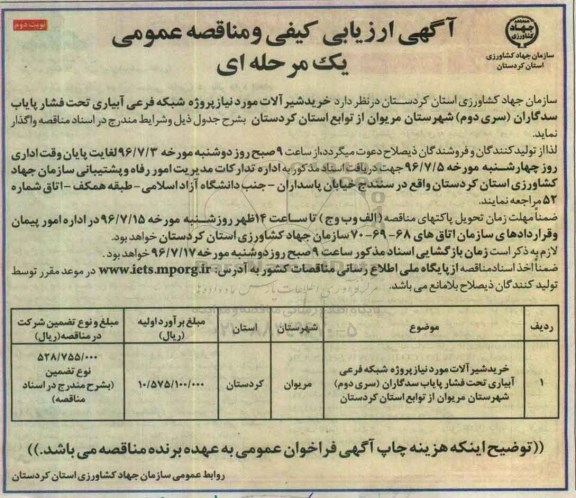 نوبت دوم
آگهی ارزیابی کیفی ومناقصه عمومی
یک مرحله ای
سازمان جهاد کشاورزی
استان کردستان
سازمان جهاد کشاورزی استان کردستان درنظر دارد خرید شیر آلات مورد نیاز پروژه شبکه فرعی آبیاری تحت فشار پایاب
سدگاران (سری دوم) شهرستان مریوان از توابع استان کردستان بشرح جدول ذیل وشرایط مندرج در اسناد مناقصه واگذار
نماید.
لذا از تولید کنندگان و فروشندگان ذیصلاح دعوت میگردد از ساعت ۹ صبح روز دوشنبه مورخه ۹۶/۷/۳ لغایت پایان وقت اداری
روز چهارشنبه مورخه ۹۶/۷/۵ جهت دریافت اسناد مذکور به اداره تدارکات مدیریت امور رفاه و پشتیبانی سازمان جهاد
کشاورزی استان کردستان واقع در سنندج خیابان پاسداران - جنب دانشگاه آزاد اسلامی - طبقه همکف - اتاق شماره
۵۲ مراجعه نمایند.
ضمناً مهلت زمان تحویل پاکتهای مناقصه (الف وب وج) تا ساعت ۱۴ظهر روز شنبه مورخه ۹۶/۷/۱۵ در اداره امور پیمان
وقراردادهای سازمان اتاق های ۶۸-۶۹-۷۰ سازمان جهاد کشاورزی استان کردستان خواهد بود.
لازم به ذکر است زمان بازگشایی اسناد مذکور ساعت ۹ صبح روز دوشنبه مورخه ۹۶/۷/۱۷ خواهد بود.
ضمنا اخذ اسناد مناقصه از پایگاه ملی اطلاع رسانی مناقصات کشور به آدرس: www.iets.mporg.ir در موعد مقرر توسط
تولید کنندگان ذیصلاح بلامانع می باشد.
ردیف موضوع شهرستان استان مبلغ برآورد اولیه (ریال) مبلغ و نوع تضمین شرکت در مناقصه(ریال)
۱ خرید شیر آلات مورد نیاز پروژه شبکه فرعی
آبیاری تحت فشار پایاب سدگاران (سری دوم)
شهرستان مریوان از توابع استان کردستان
مریوان کردستان ۱۰/۵۷۵/۱۰۰/۰۰۰
۵۲۸/۷۵۵/۰۰۰
نوع تضمین
(بشرح مندرج در اسناد
مناقصه)
((توضیح اینکه هزینه چاپ آگهی فراخوان عمومی به عهده برنده مناقصه می باشد.))
روابط عمومی سازمان جهاد کشاورزی استان کردستان